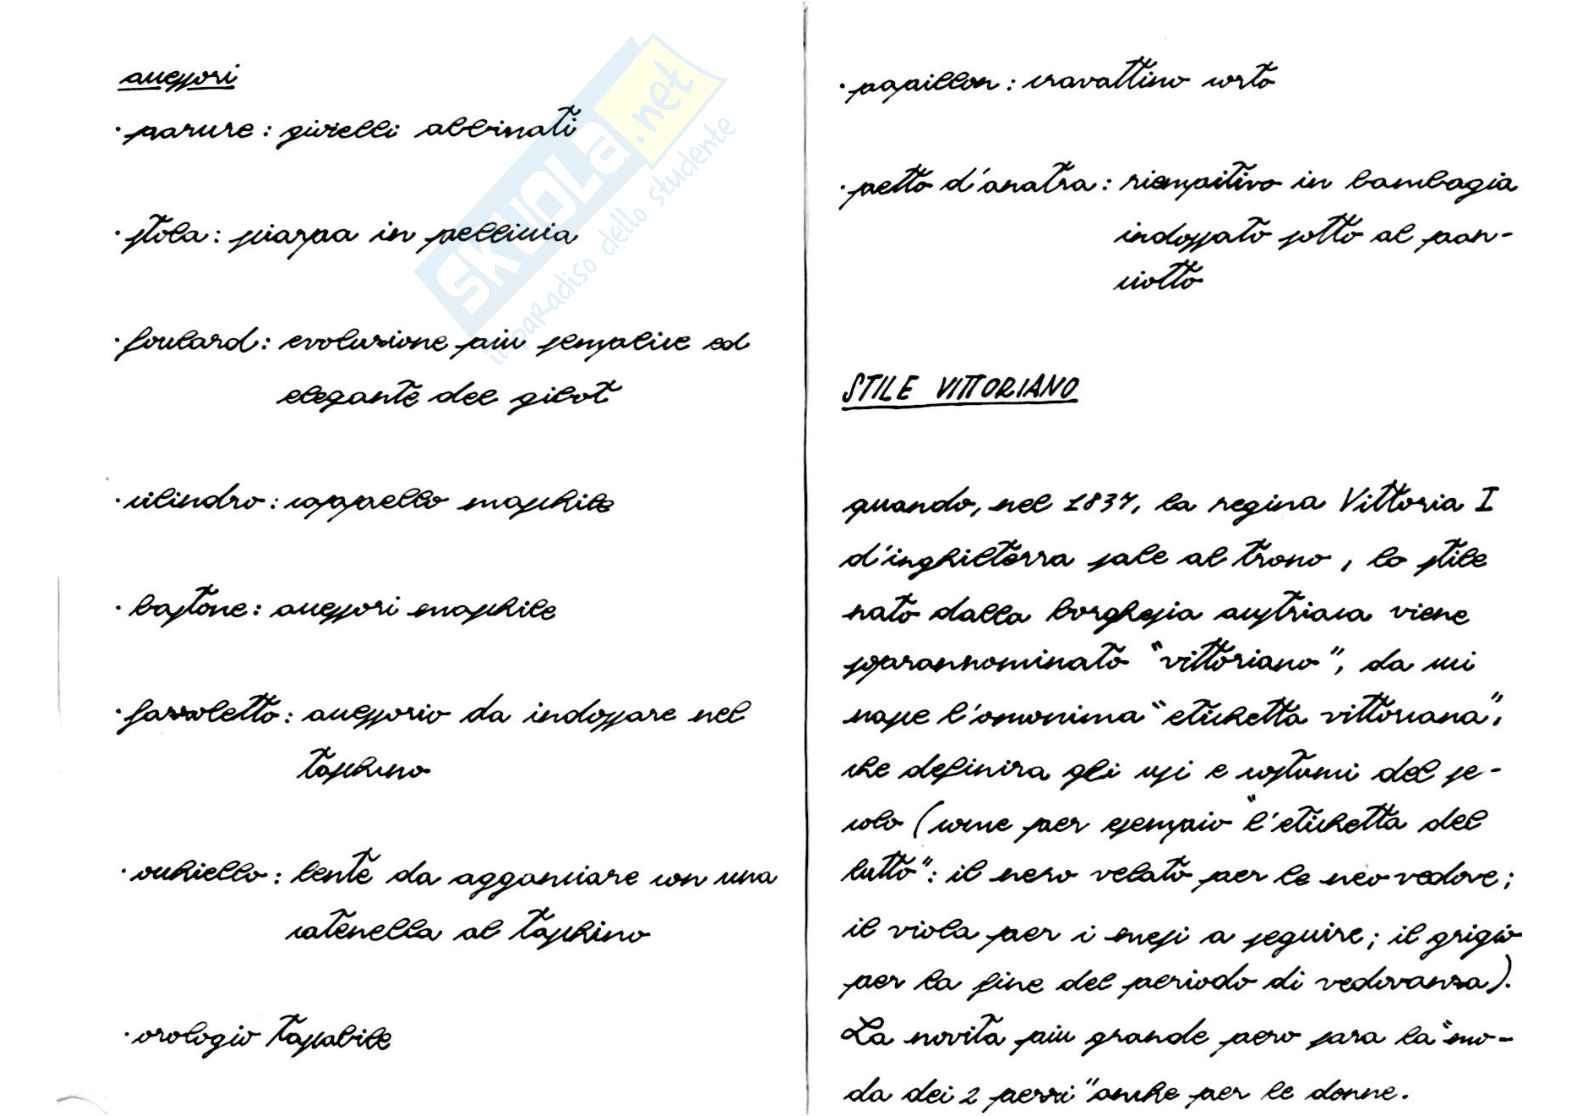 accessori
· parure: gioielli abbinati
· stola: sciarpa in pelliccia
· foulard: evoluzione più semplice ed
elegante del gilot
· cilindro: cappello maschile
· bastone: accessori maschile
· fazzoletto: accessorio da indossare nel
taschino
· occhiello: lente da agganciare con una
catenella al taschino
· orologio tascabile
· papillon: cravattino corto
· petto d'anatra: riempitivo in bambagia
indossato sotto al pan-
ciotto
STILE VITTORIANO
quando, nel 1837, la regina Vittoria I
d'inghilterra sale al trono, lo stile
nato dalla borghesia austriaca viene
soprannominato "vittoriano", da cui
nasce l'omonima "etichetta vittoriana",
che definira gli usi e costumi del se-
colo (come per esempio "l'etichetta del
lutto": il nero velato per le neo vedove;
il viola per i mesi a seguire; il grigio
per la fine del periodo di vedovanza).
La novità più grande però sara la "mo-
da dei 2 pezzi" anche per le donne.
SKUOLA.net
il paradiso dello studente